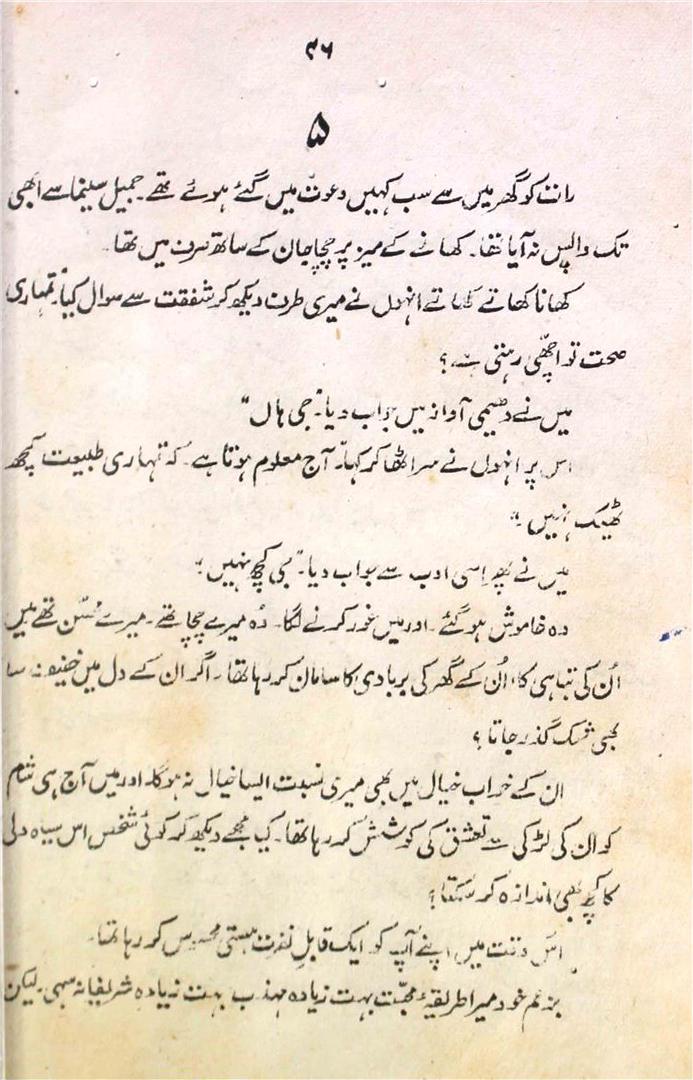 ۴۶
۵
رات کو گھر میں سے سب کہیں دعوت میں گئے ہوئے تھے۔ جمیل سینما سے ابھی
تک واپس نہ آیا تھا۔ کھانے کے میز پر چچا جان کے ساتھ صرف میں تھا۔
کھانا کھاتے کھاتے انہوں نے میری طرف دیکھ کر شفقت سے سوال کیا "تمہاری
صحت تو اچھی رہتی ہے؟
میں نے دھیمی آواز میں جواب دیا۔ "جی ہاں"
اس پر انہوں نے سر اٹھا کر کہا۔ آج معلوم ہوتا ہے۔ کہ تمہاری طبیعت کچھ
ٹھیک نہیں۔"
میں نے پھر اسی ادب سے جواب دیا۔ "جی کچھ نہیں۔"
وہ خاموش ہو گئے۔ اور میں غور کرنے لگا۔ وہ میرے چچا تھے۔ میرے محسن تھے میں
اُن کی تباہی کا، اُن کے گھر کی بربادی کا سامان کر رہا تھا۔ اگر ان کے دل میں خفیف سا
بھی شک گذر جاتا؟
ان کے خواب خیال میں بھی میری نسبت ایسا خیال نہ ہوگا۔ اور میں آج ہی شام
کو ان کی لڑکی سے تعشق کی کوشش کر رہا تھا۔ کیا مجھے دیکھ کر کوئی شخص اس سیاہ دلی
کا کچھ بھی اندازہ کر سکتا؟
اس وقت میں اپنے آپ کو ایک قابلِ نفرت ہستی محسوس کر رہا تھا۔
بزعم خود میرا طریقۂ محبّت بہت زیادہ مہذب بہت زیادہ شریفانہ سہی۔ لیکن